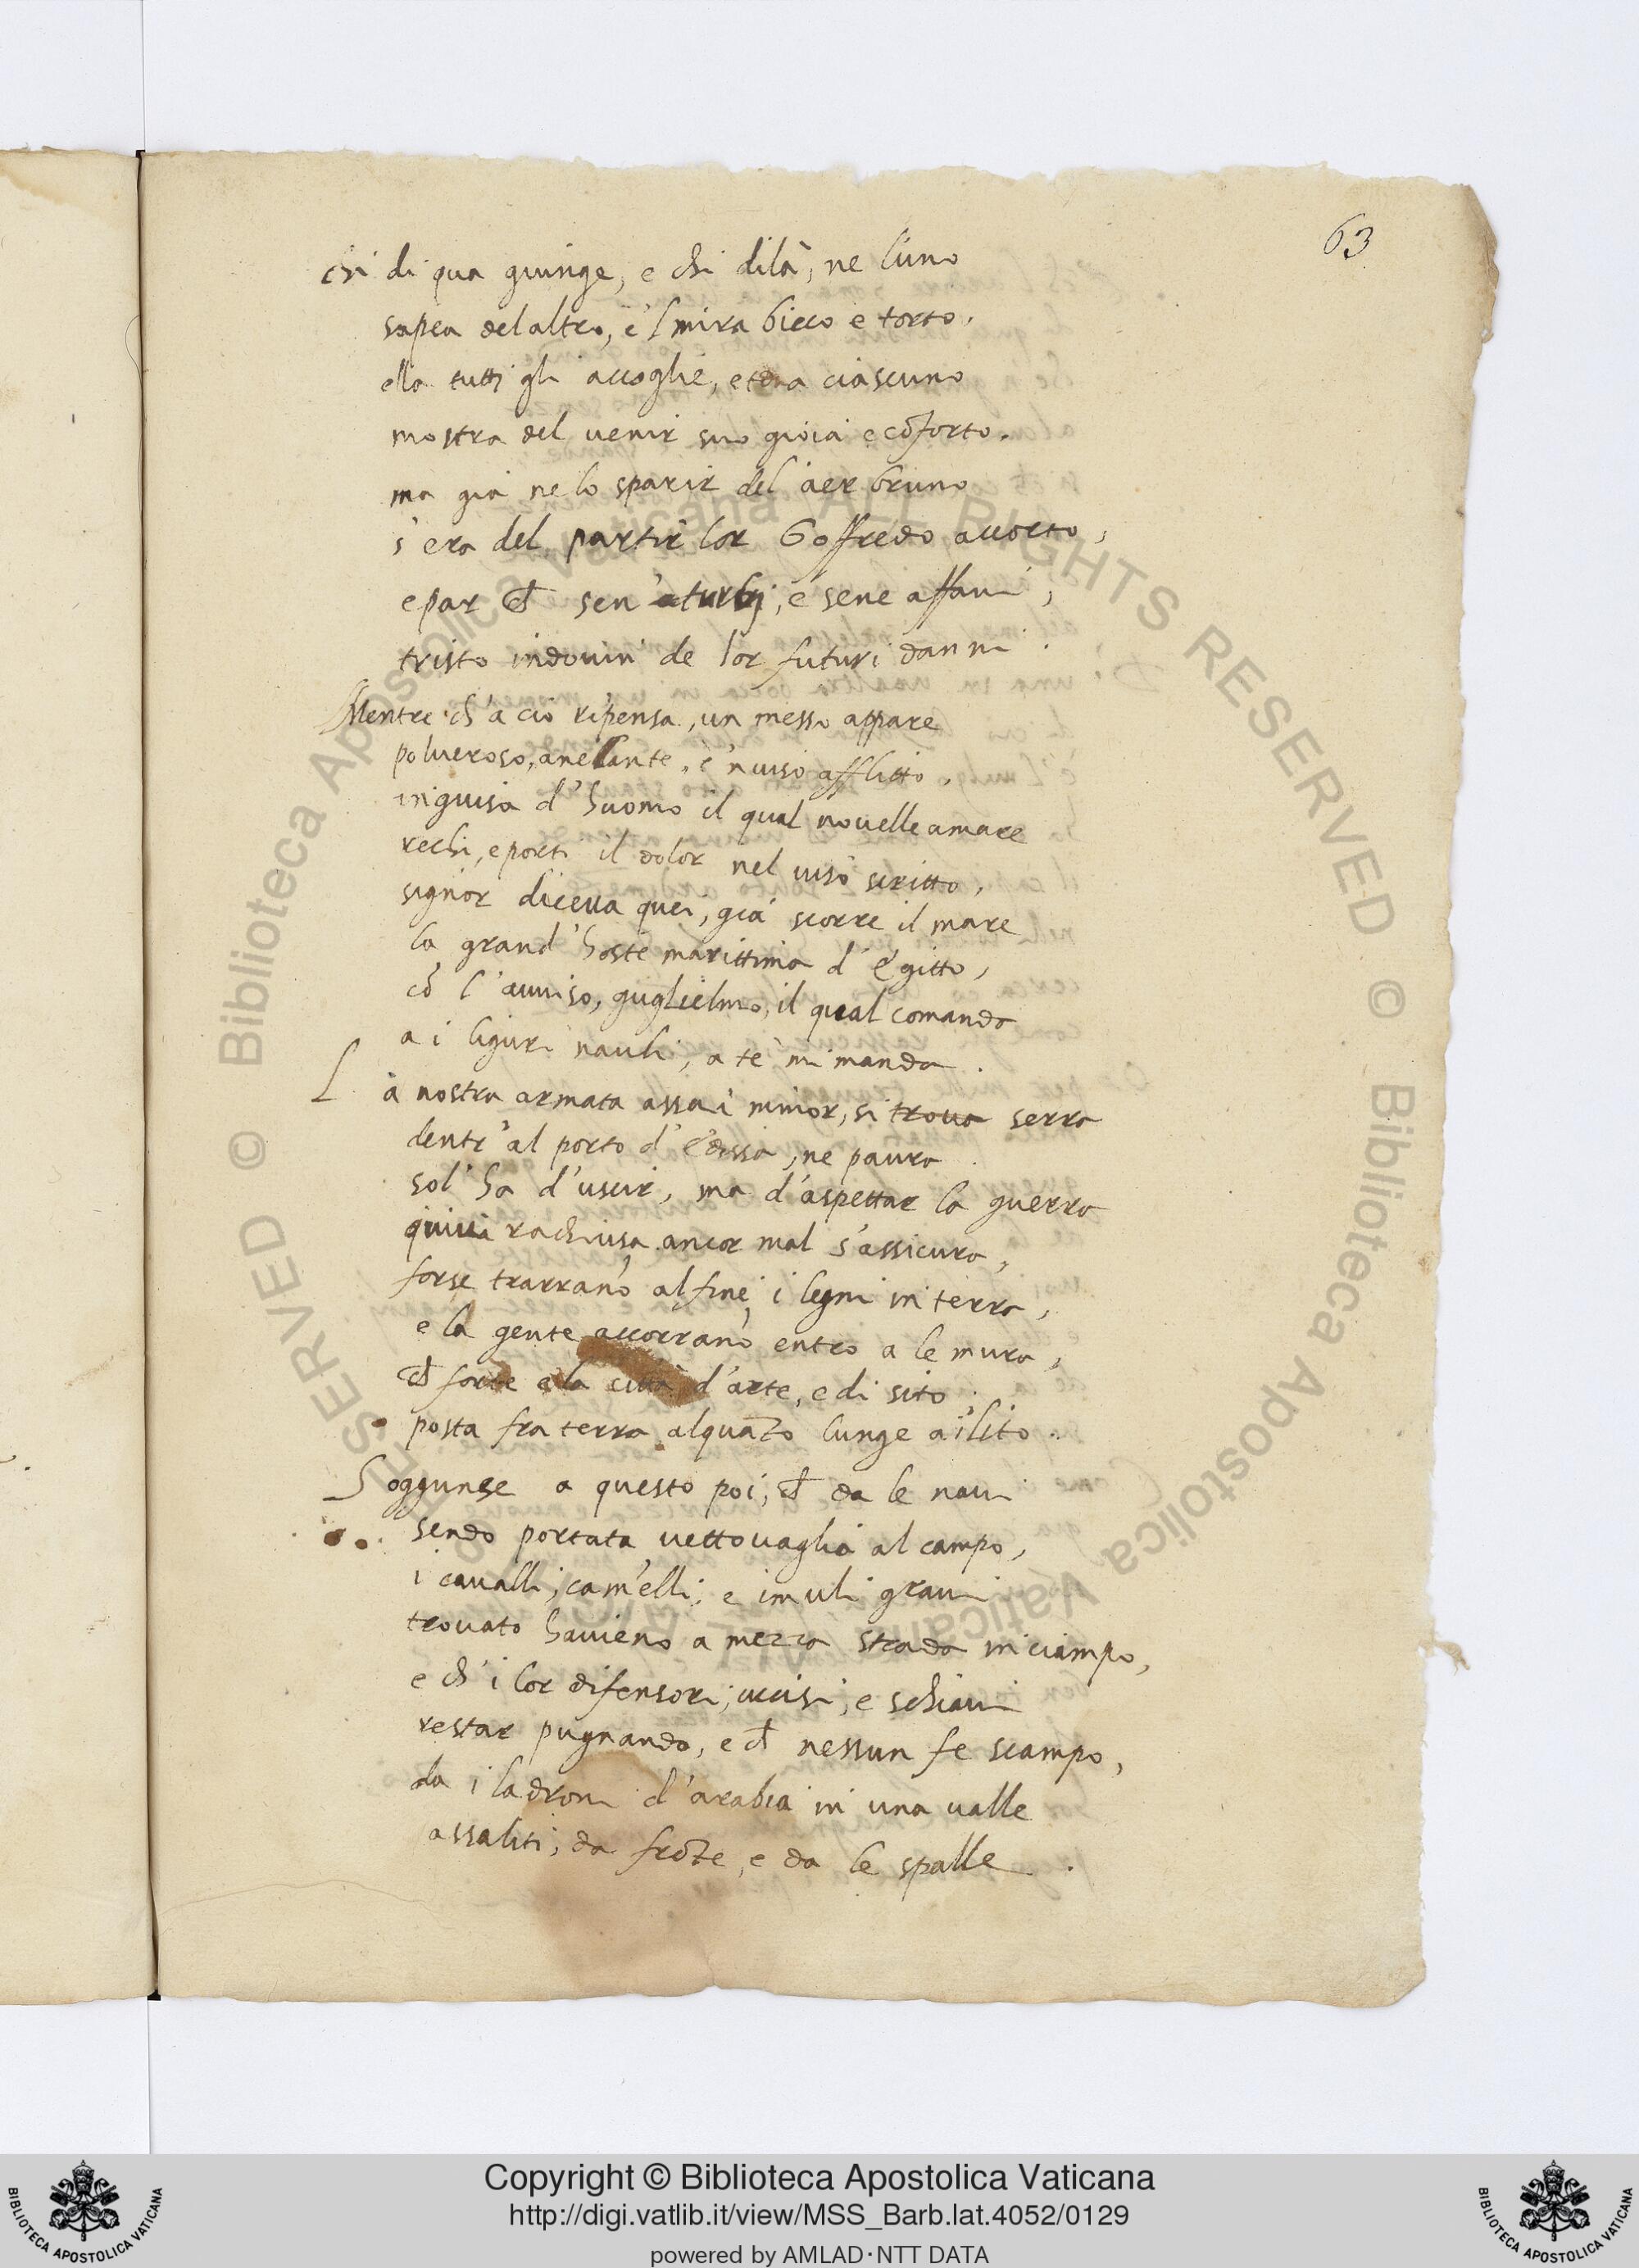 63
chi di qua giunge, e chi dilà, ne l'uno
sapea del altro, e'l mira bieco e torto.
ella tutti gli accoglie, et a ciascuno
mostra del uenir suo gioia e cōforto.
ma già ne lo sparir del aer bruno
s'era del partir lor Goffredo accorto,
e par ch̄ sen'
tristo indouin de lor futuri danni.
Mentre ch'a ciò ripensa, un messo appare
polueroso, anelante, e'n uiso afflitto,
in guisa d'huomo il qual nouelle amare
rechi, e porti il dolor nel uiso scritto,
signor diceua quei, già scorre il mare
la grand'hoste marittima d'egitto,
cō l'auuiso, guglielmo, il qual comanda
a i liguri nauli, a te mi manda.
La nostra armata assai minor, si trova serra
dentr'al porto d', ne paura
sol' ha d'uscir, ma d'aspettar la guerra
quiui rachiusa ancor mal s'assicura,
forse trarrano al fine i legni in terra,
e la gente accorrano entro a le mura,
ch̄ forte e la città d'arte, e di sito
posta fra terra alquāto lunge a il lito.
Soggiunse a questo poi, ch̄ da le naui
sendo portata uettouaglia al campo,
i caualli, camelli, e i muli graui
trouato hauieno a mezza strada inciampo,
e ch'i lor difensori, uccisi, e schiaui
restar pugnando, e ch̄ nessun fe scampo,
da i ladroni d'arabia in una ualle
assaliti, da frōte, e da le spalle.
Copyright © Biblioteca Apostolica Vaticana
http://digi.vatlib.it/view/MSS_Barb.lat.4052/0129
powered by AMLAD·NTT DATA
BIBLIOTECA APOSTOLICA VATICANA
BIBLIOTECA APOSTOLICA VATICANA
© Biblioteca Apostolica Vaticana ALL RIGHTS RESERVED
© Biblioteca Apostolica Vaticana ALL RIGHTS RESERVED